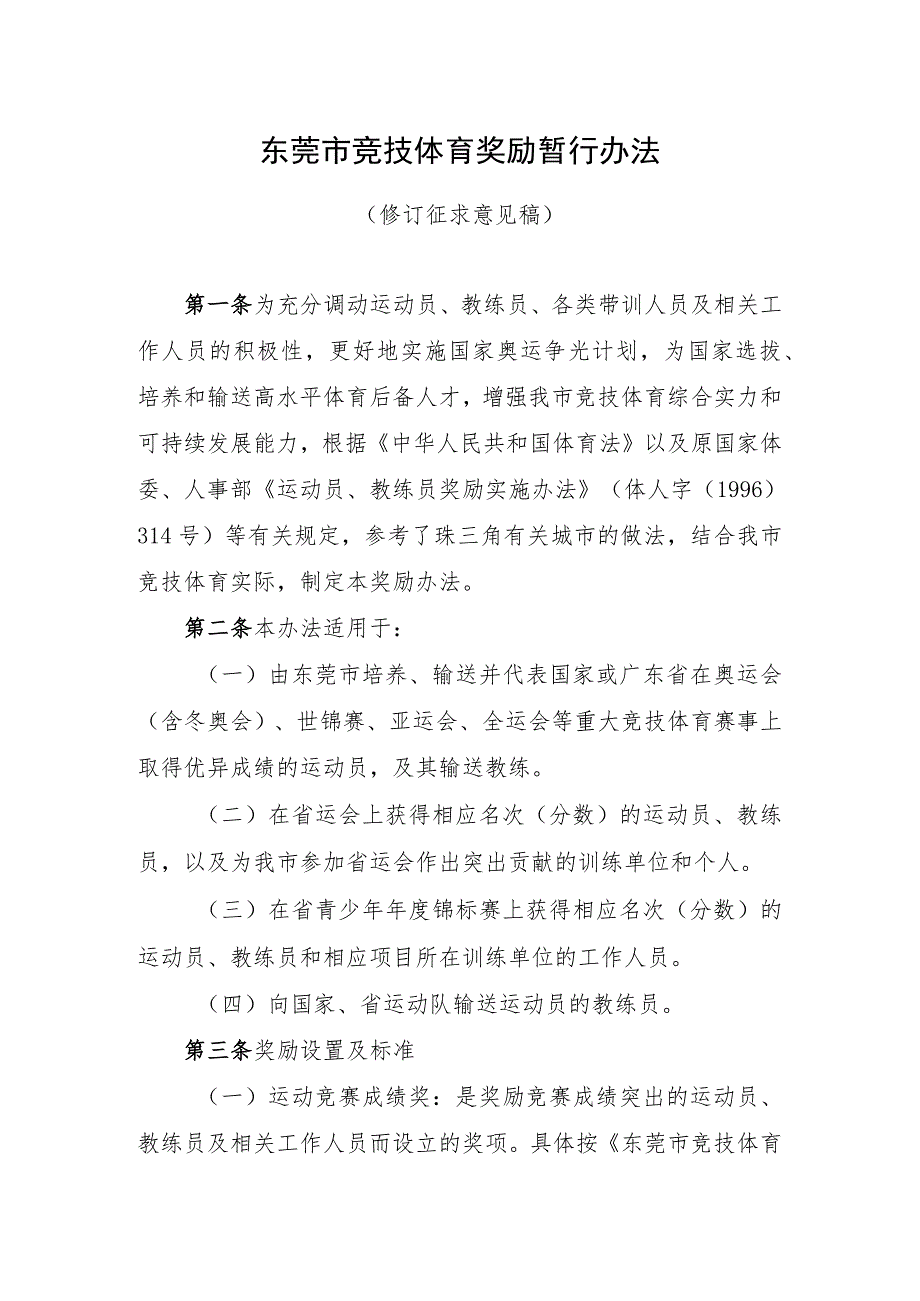 东莞市竞技体育奖励暂行办法
（修订征求意见稿）
第一条为充分调动运动员、教练员、各类带训人员及相关工
作人员的积极性，更好地实施国家奥运争光计划，为国家选拔、
培养和输送高水平体育后备人才，增强我市竞技体育综合实力和
可持续发展能力，根据《中华人民共和国体育法》以及原国家体
委、人事部《运动员、教练员奖励实施办法》（体人字（1996）
314号）等有关规定，参考了珠三角有关城市的做法，结合我市
竞技体育实际，制定本奖励办法。
第二条本办法适用于：
（一）由东莞市培养、输送并代表国家或广东省在奥运会
（含冬奥会）、世锦赛、亚运会、全运会等重大竞技体育赛事上
取得优异成绩的运动员，及其输送教练。
（二）在省运会上获得相应名次（分数）的运动员、教练
员，以及为我市参加省运会作出突出贡献的训练单位和个人。
（三）在省青少年年度锦标赛上获得相应名次（分数）的
运动员、教练员和相应项目所在训练单位的工作人员。
（四）向国家、省运动队输送运动员的教练员。
第三条奖励设置及标准
（一）运动竞赛成绩奖：是奖励竞赛成绩突出的运动员、
教练员及相关工作人员而设立的奖项。具体按《东莞市竞技体育